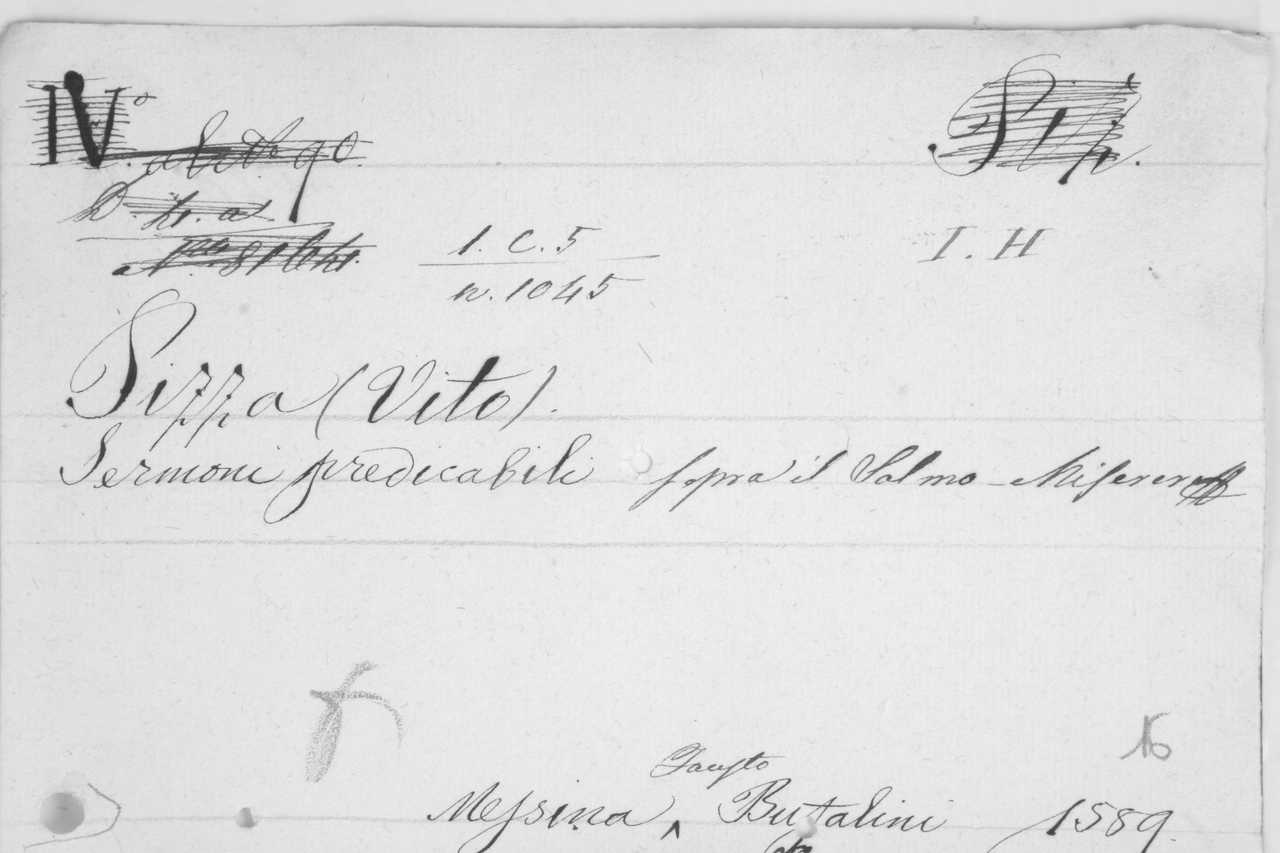 IVº
I. H
1. C. 5
n. 1045
Pizza (Vito).
Sermoni predicabili sopra il Salmo - Miserere
16
Fausto
Messina ^ Bufalini 1589.